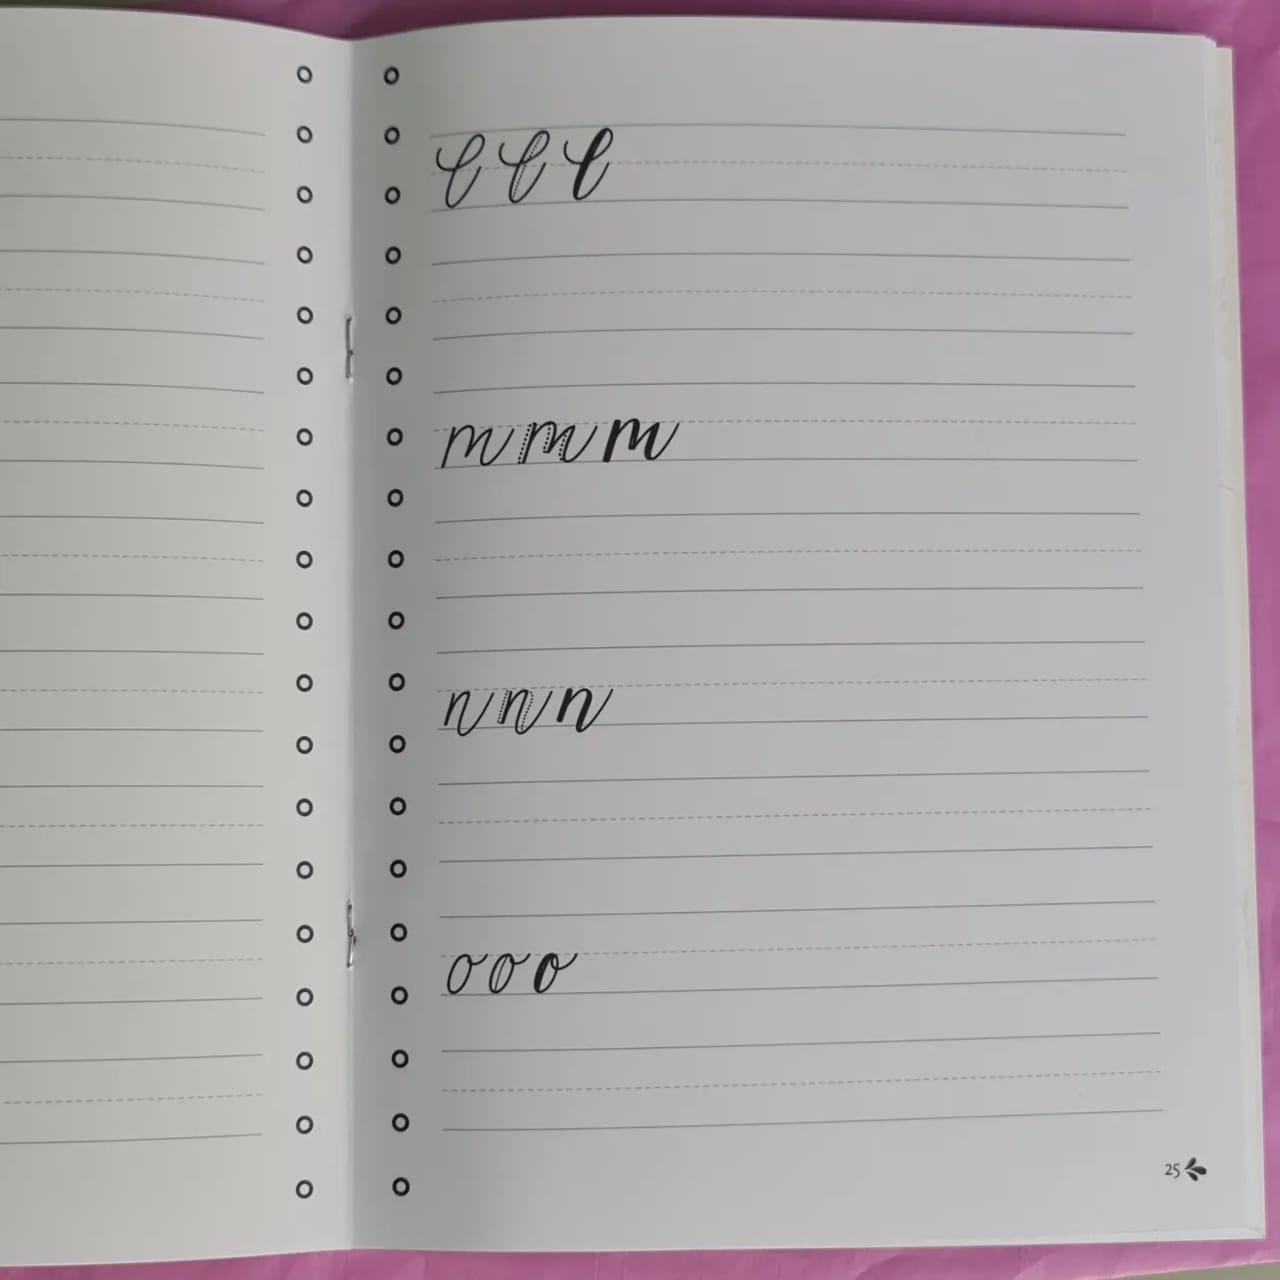 l l l
m m m
n n n
o o o
25